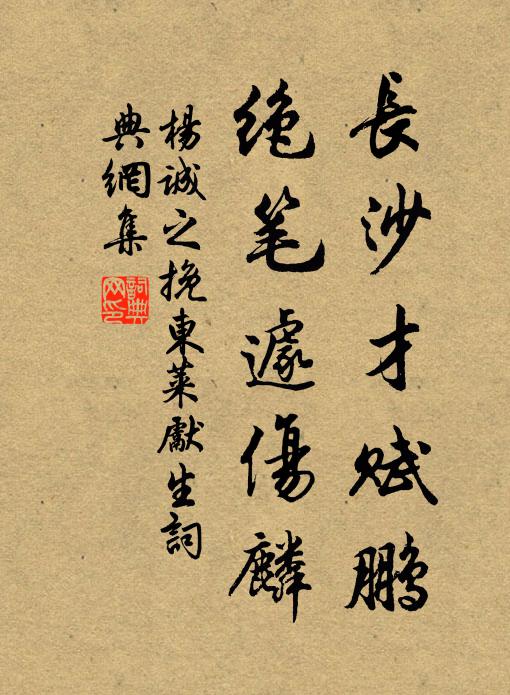 長沙才賦鵬
絶笔遽傷麟
楊誠之挽東萊獻生詞
典網集
詞典
网印